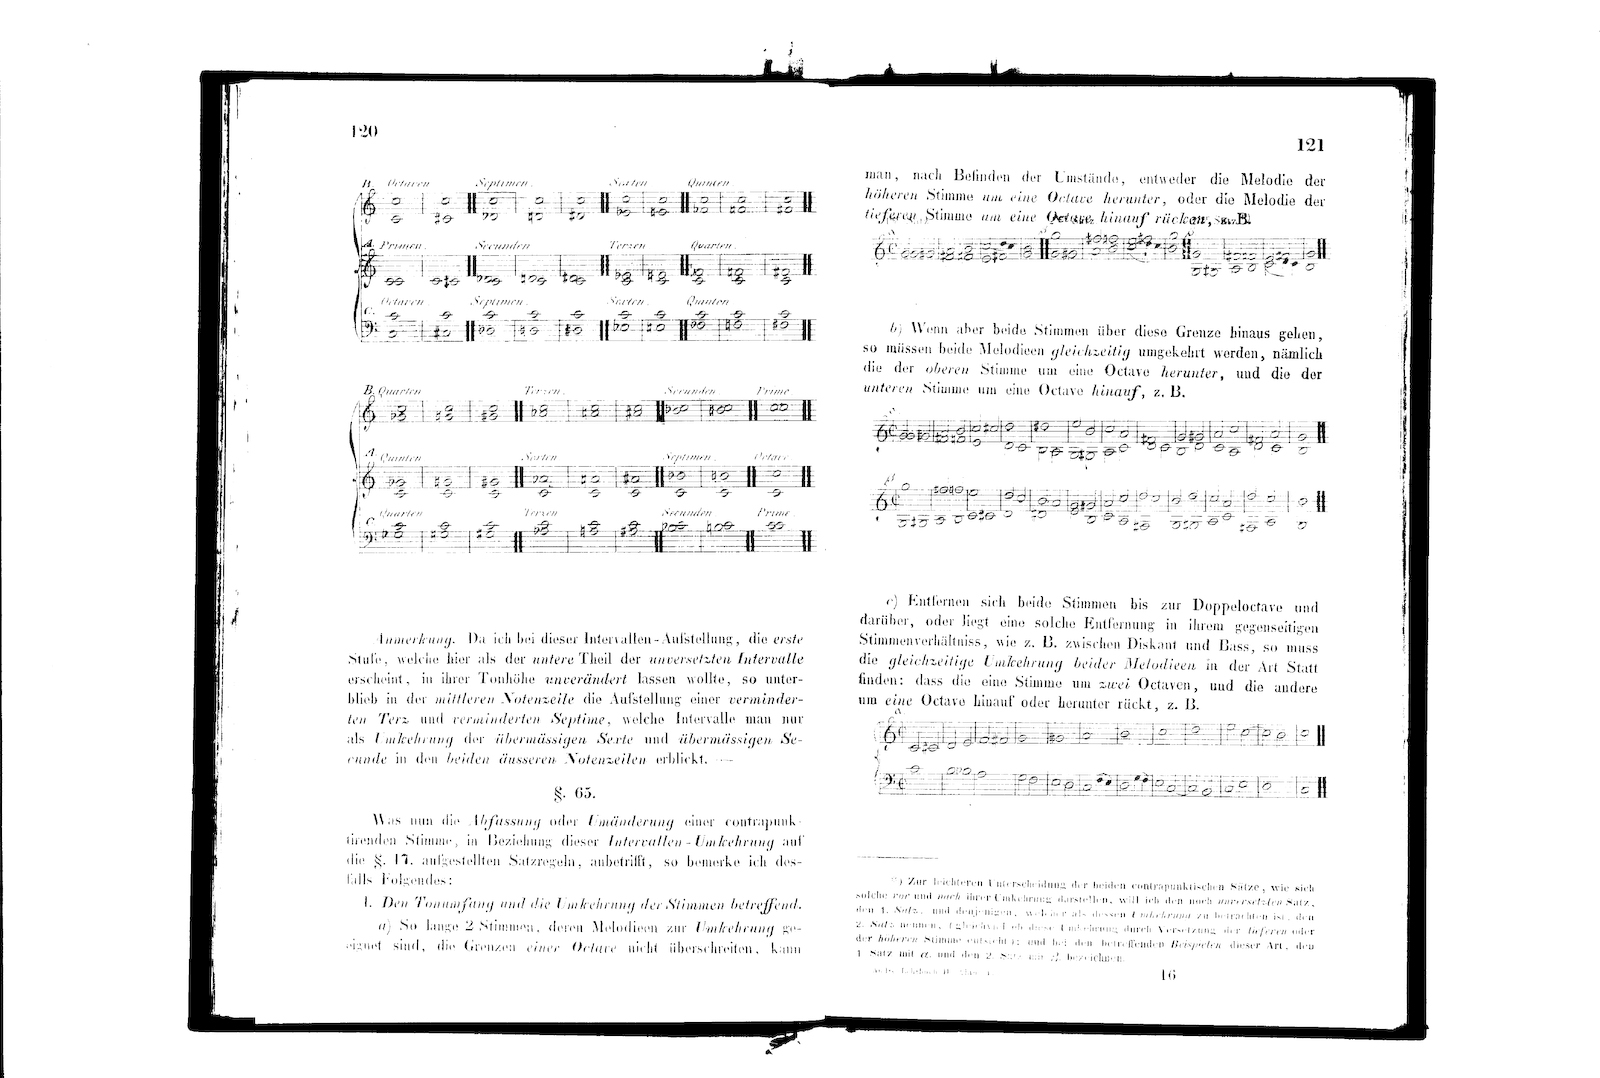 120
B. Octaven. Septimen. Sexten Quinten
A. Primen. Secunden Terzen Quarten.
C. Octaven. Septimen. Sexten. Quinten
B. Quarten Terzen. Secunden Prime
A. Quinten Sexten Septimen. Octave
C. Quarten Terzen Secunden. Prime.
Anmerkung. Da ich bei dieser Intervallen-Aufstellung, die erste
Stufe, welche hier als der untere Theil der unversetzten Intervalle
erscheint, in ihrer Tonhöhe unverändert lassen wollte, so unter-
blieb in der mittleren Notenzeile die Aufstellung einer verminder-
ten Terz und verminderten Septime, welche Intervalle man nur
als Umkehrung der übermässigen Sexte und übermässigen Se-
cunde in den beiden äusseren Notenzeilen erblickt. —
§. 65.
Was nun die Abfassung oder Umänderung einer contrapunk-
tirenden Stimme, in Beziehung dieser Intervallen-Umkehrung auf
die §. 17. aufgestellten Satzregeln, anbetrifft, so bemerke ich des-
falls Folgendes:
1. Den Tonumfang und die Umkehrung der Stimmen betreffend.
a) So lange 2 Stimmen, deren Melodieen zur Umkehrung ge-
eignet sind, die Grenzen einer Octave nicht überschreiten, kann
121
man, nach Befinden der Umstände, entweder die Melodie der
höheren Stimme um eine Octave herunter, oder die Melodie der
tieferen Stimme um eine Octave hinauf rücken, z. B.
b) Wenn aber beide Stimmen über diese Grenze hinaus gehen,
so müssen beide Melodieen gleichzeitig umgekehrt werden, nämlich
die der oberen Stimme um eine Octave herunter, und die der
unteren Stimme um eine Octave hinauf, z. B.
c) Entfernen sich beide Stimmen bis zur Doppeloctave und
darüber, oder liegt eine solche Entfernung in ihrem gegenseitigen
Stimmenverhältniss, wie z. B. zwischen Diskant und Bass, so muss
die gleichzeitige Umkehrung beider Melodieen in der Art Statt
finden: dass die eine Stimme um zwei Octaven, und die andere
um eine Octave hinauf oder herunter rückt, z. B.
*) Zur leichteren Unterscheidung der beiden contrapunktischen Sätze, wie sich
solche vor und nach ihrer Umkehrung darstellen, will ich den noch unversetzten Satz,
den 1. Satz, und denjenigen, welcher als dessen Umkehrung zu betrachten ist, den
2. Satz nennen, (gleichviel ob diese Umkehrung durch Versetzung der tieferen oder
der höheren Stimme entsteht); und bei den betreffenden Beispielen dieser Art, den
1. Satz mit a. und den 2. Satz mit bezeichnen.
16